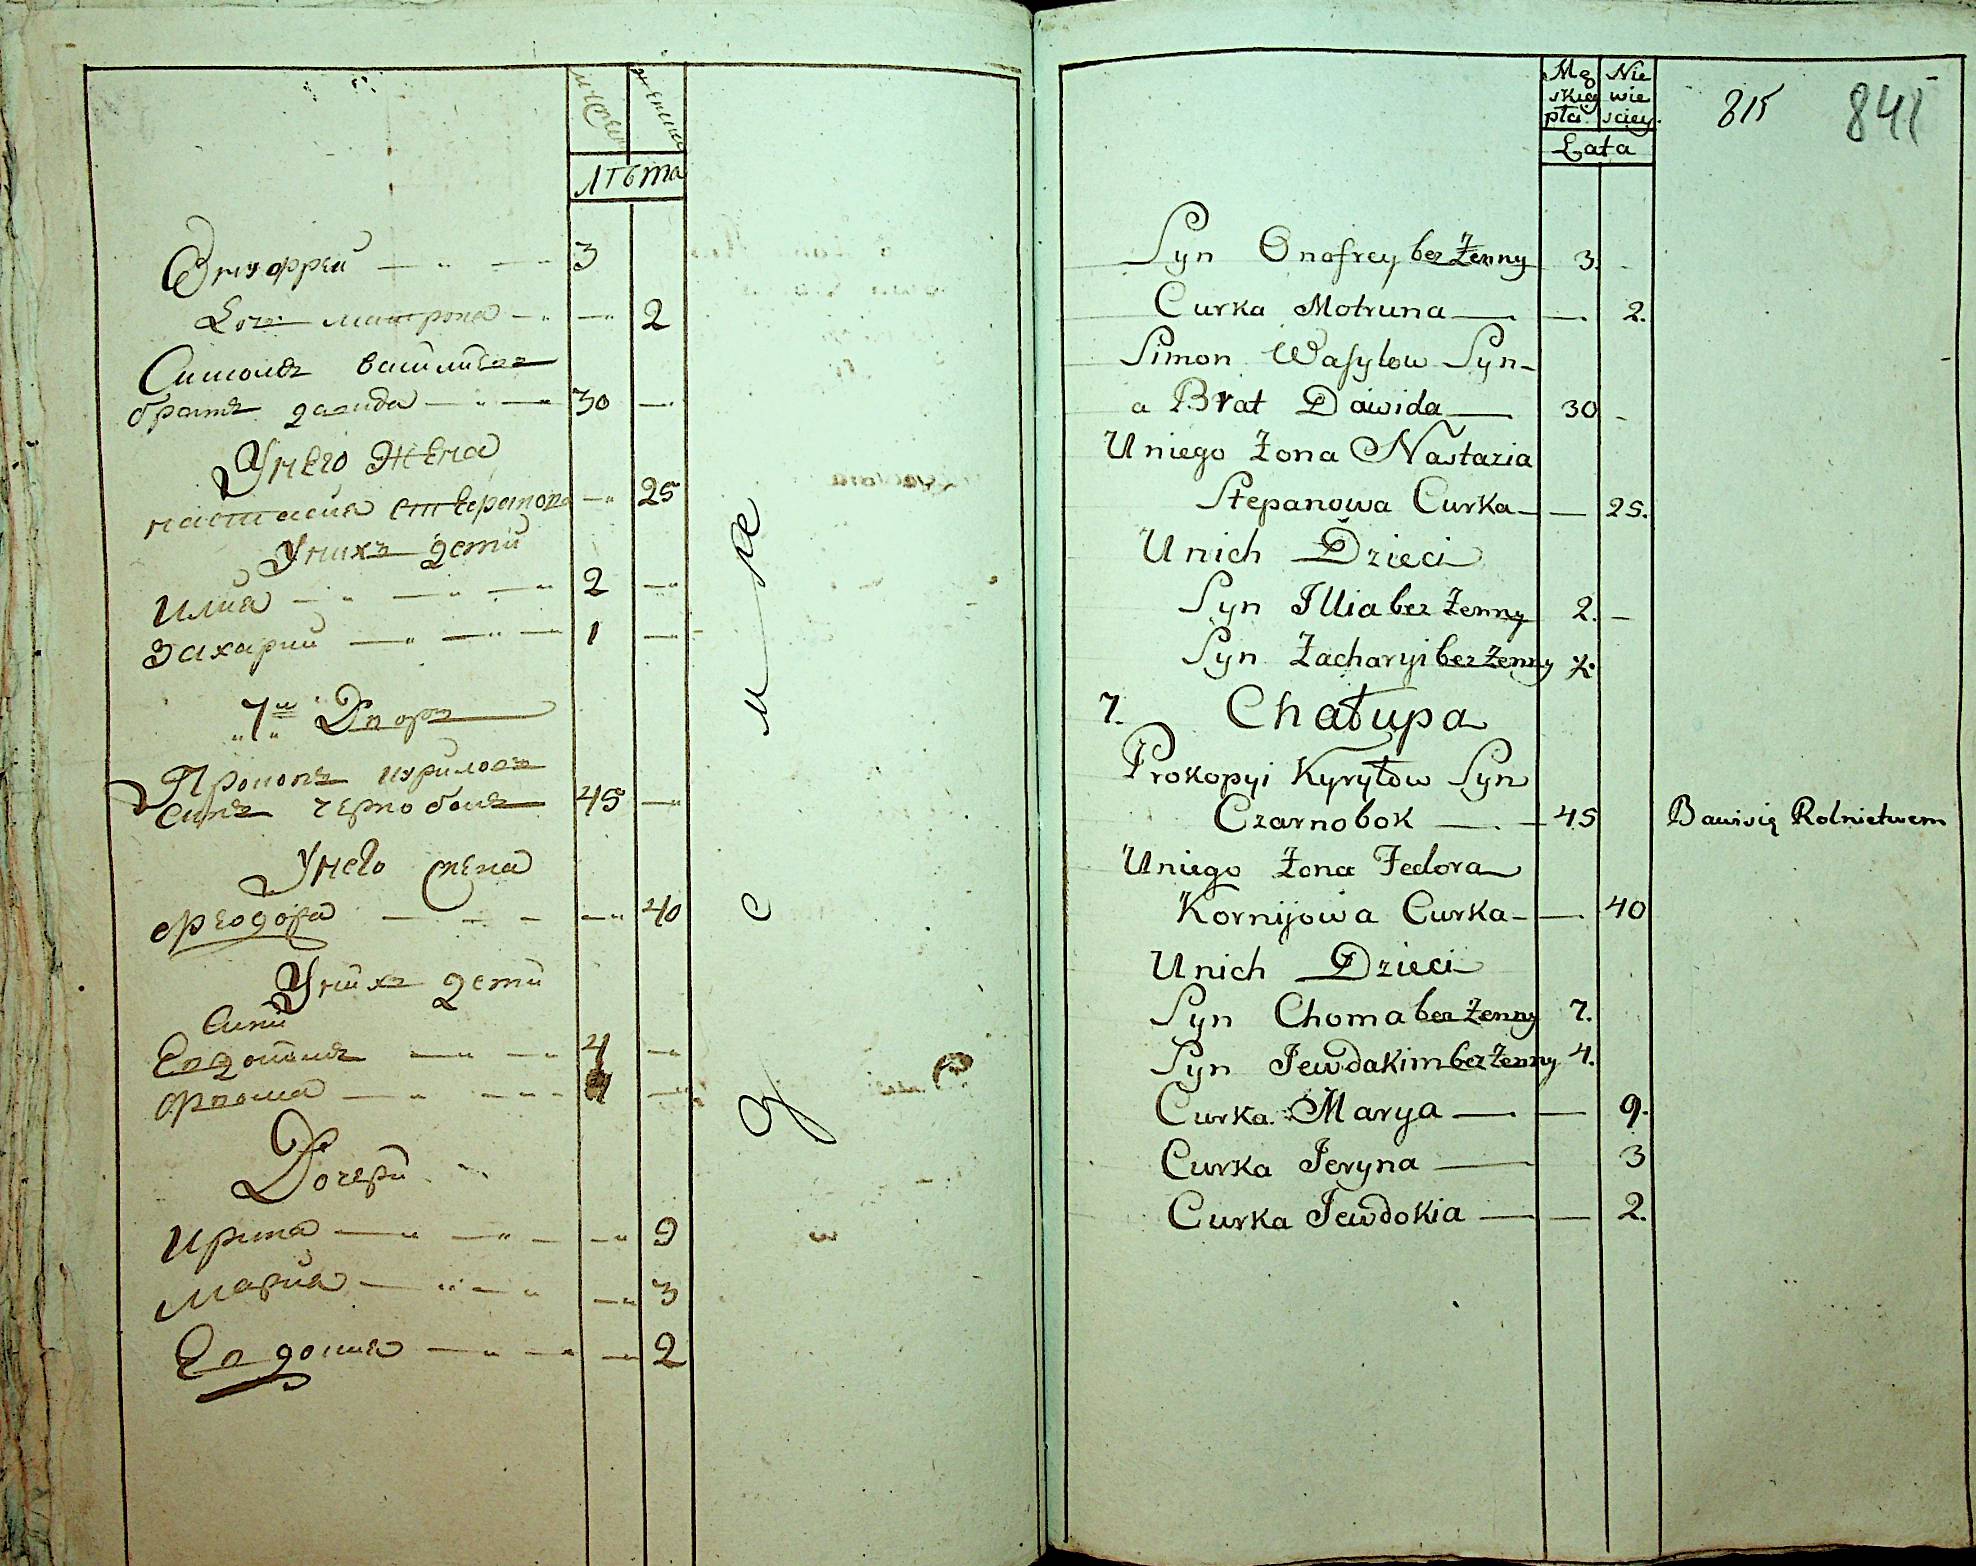 Лѣта
Онуфрей 3
Дочь матрона 2
Симонъ василиевъ
братъ давида 30
У него жена
настасия степанова 25
У нихъ дети
илия 2
Захарий 1
7й Дворъ
Прокопъ кириловъ
синъ чернобокъ 45
У него жена
феодора 40
У нихъ дети
Сини
Евдокимъ 4
фома
Дочери
ирина 9
Мария 3
Евдокия 2
Mę Nie
skiey wie
płci sciey
Lata
815 841
Syn Onofrey bez Żenny 3.
Curka Motruna 2.
Simon Wasylow Syn
a Brat Dawida 30
Uniego Żona Nastazia
Stepanowa Curka 25.
Unich Dzieci
Syn Illia bez Żenny 2.
Syn Zacharyi bez Żenny
7. Chałupa
Prokopyi Kyryłow Syn
Czarnobok 45 Bawi się Rolnictwem
Uniego Żona Fedora
Kornijowa Curka 40
Unich Dzieci
Syn Choma bez Żenny 7.
Syn Jewdakim bez Żenny 4.
Curka Marya 9.
Curka Jeryna 3
Curka Jewdokia 2.